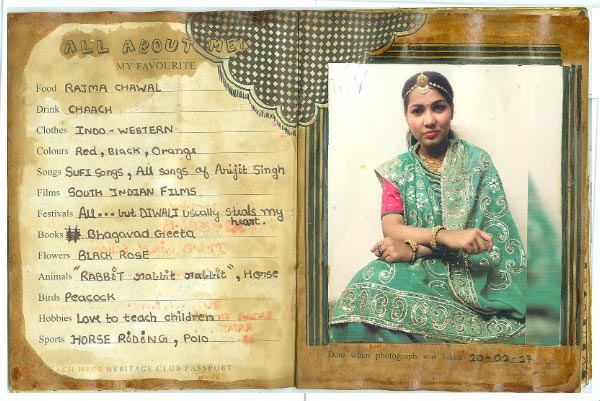 ALL ABOUT ME!
MY FAVOURITE
Food RAJMA CHAWAL
Drink CHAACH
Clothes INDO-WESTERN
Colours Red, Black, Orange
Songs SUFI Songs, All songs of Arijit Singh
Films SOUTH INDIAN FILMS
Festivals All... but DIWALI usually steals my
heart.
Books Bhagavad Geeta
Flowers BLACK ROSE
Animals "RABBIT rabbit rabbit", Horse
Birds Peacock
Hobbies Love to teach children
Sports HORSE RIDING, POLO
HECS HERITAGE CLUB PASSPORT
Date when photograph was taken 20-02-17